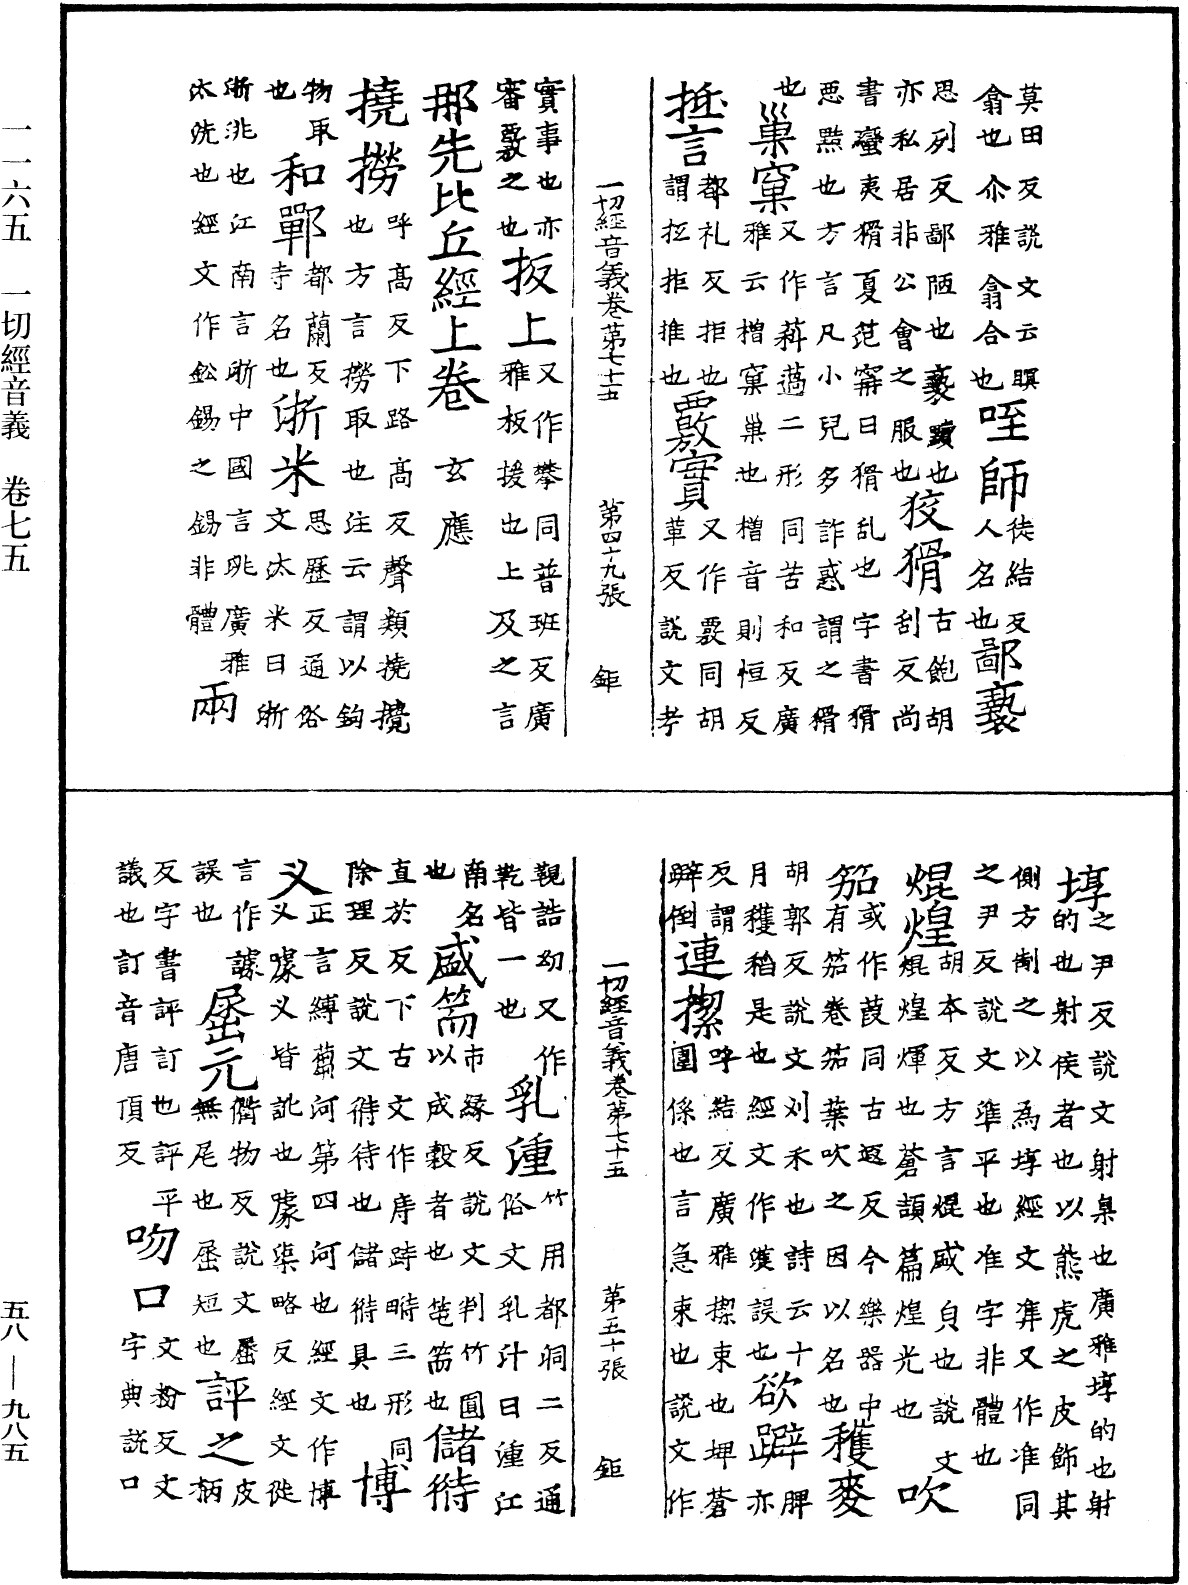 一一六五　一切經音義　卷七五
五八——九八五
莫田反説文云瞑
翕也尒雅翕合也咥師徒結反
人名也鄙褻
思列反鄙陋也褻黷也
亦私居非公會之服也狡猾古飽胡
刮反尚
書蠻夷猾夏范甯曰猾乱也字書猾
惡黠也方言凡小兒多詐惑謂之猾
也巢窠又作薖二形同苦和反廣
雅云橧窠巢也橧音則恒反
抵言都礼反拒也
謂抂拒推也覈實又作覈同胡
革反説文考
一切經音義卷第七十五　第四十九張　鉅
實事也亦
審覈之也扳上又作攀同普班反廣
雅板援也上及之言
那先比丘經上卷　玄應
撓撈呼高反下路高反聲類撓攪
也方言撈取也注云謂以鉤
物取
也和鄲都蘭反
寺名也淅米思歷反通俗
文汰米曰淅
淅洮也江南言淅中國言洮廣雅
汰洗也經文作鉛錫之錫非體兩
埻之尹反説文射臬也廣雅埻的也射
的也射侯者也以熊虎之皮飾其
側方制之以為埻經文準又作准同
之尹反説文準平也准字非體也
焜煌胡本反方言焜盛皃也説文
焜煌煇也蒼頡篇煌光也吹
笳或作葭同古遐反今樂器中
有笳卷笳葉吹之因以名也穫麥
胡郭反説文刈禾也詩云十
月穫稻是也經文作濩誤也欲躃脾
亦
反謂
躃倒連摞呼結反廣雅摞束也埤蒼
圍係也言急束也説文作
一切經音義卷第七十五　第五十張　鉅
觀誥幼又作
乾皆一也乳湩竹用都洞二反通
俗文乳汁曰湩江
南名
也盛篅市緣反説文判竹圓
以成穀者也笔篅也儲偫
直於反下古文作庤跱畤三形同
除理反説文偫待也儲偫具也博
叉正言縛蒭河第四河也經文作博
叉㗸叉皆訛也㗸柒略反經文從
言作據
誤也屈元衢物反説文屈
無尾也屈短也評之皮
柄
反字書評訂也評平
議也訂音唐頂反吻口文粉反文
字典説口